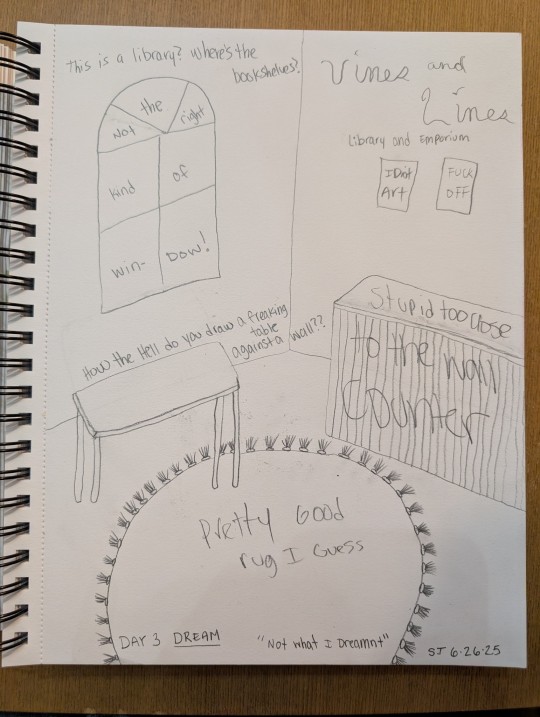 This is a library? Where's the
bookshelves?
Vines and
Lines
Library and Emporium
Not the right
kind of
win- Dow!
I Don't
Art
FUCK
OFF
How the Hell do you draw a freaking
table
against a wall??
Stupid too close
to the wall
Counter
Pretty Good
rug I Guess
DAY 3 DREAM
"Not what I Dreamnt"
ST 6·26·25